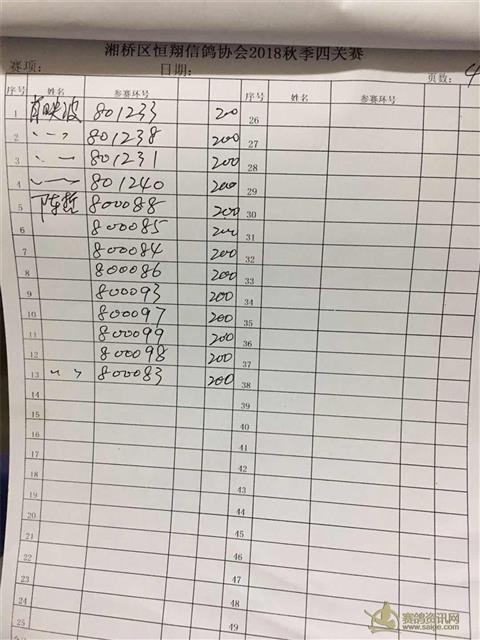 湘桥区恒翔信鸽协会2018秋季四关赛
赛项: 日期: 页数: 4
序号 姓名 参赛环号 序号 姓名 参赛环号
1 肖映波 801233 200 26
2 〃 801238 200 27
3 〃 801231 200 28
4 〃 801240 200 29
5 陈哲 800088 200 30
6 800085 200 31
7 800084 200 32
8 800086 200 33
9 800093 200 34
10 800097 200 35
11 800099 200 36
12 800098 200 37
13 〃 800083 200 38
14 39
15 40
16 41
17 42
18 43
19 44
20 45
21 46
22 47
23 48
24 49
25
赛鸽资讯网
www.saige.com